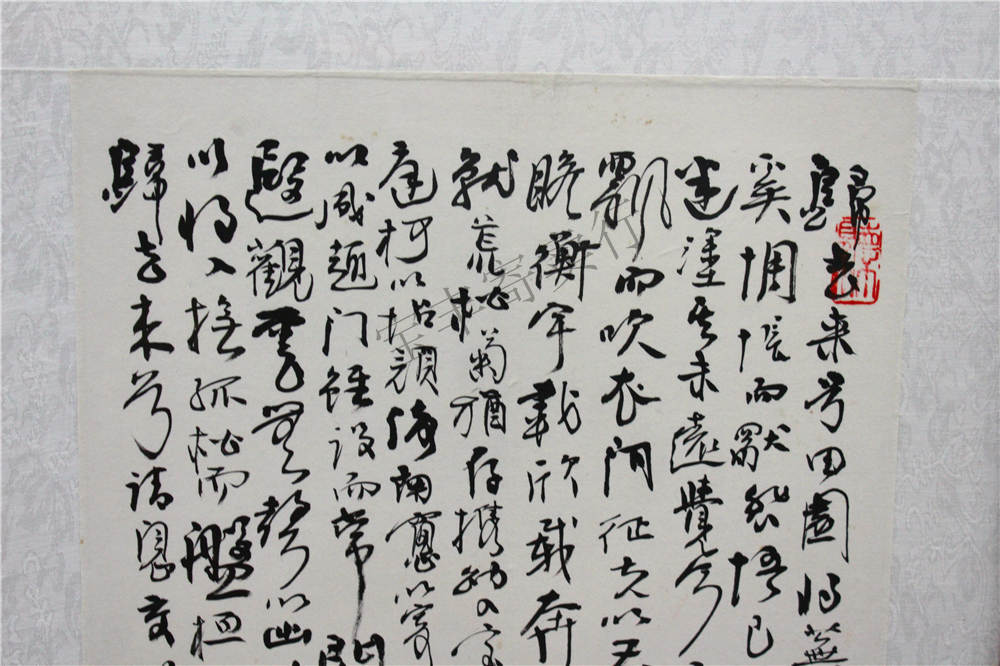 歸去来兮田園将蕪
奚惆悵而獨悲悟已
迷塗其未遠覺今
飄而吹衣问征夫以前
瞻衡宇載欣載奔
就荒松菊猶存攜幼入室
庭柯以怡顔倚南窻以寄
以成趣门雖設而常関
遐觀雲无以出
以将入撫孤松而盤桓
歸去来兮請息交